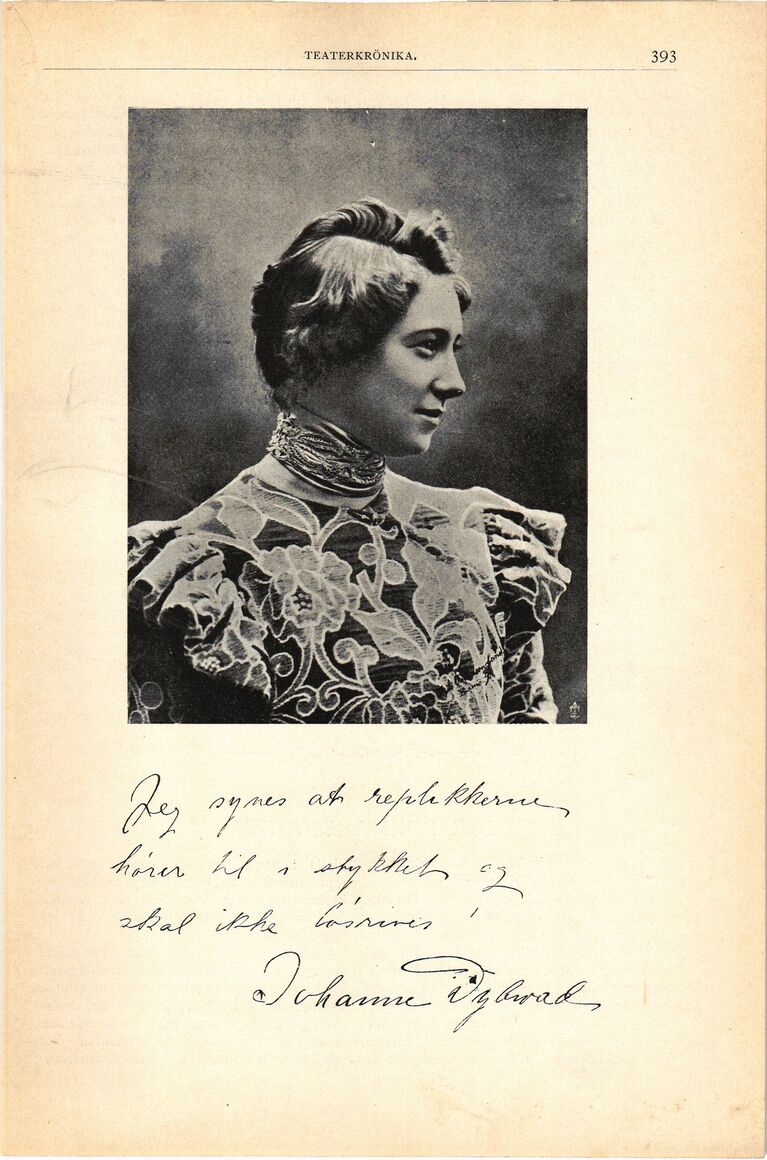 TEATERKRÖNIKA.
393
Jeg synes at replikkerne
hører til i stykket og
skal ikke løsrives!
Johanne Dybwad